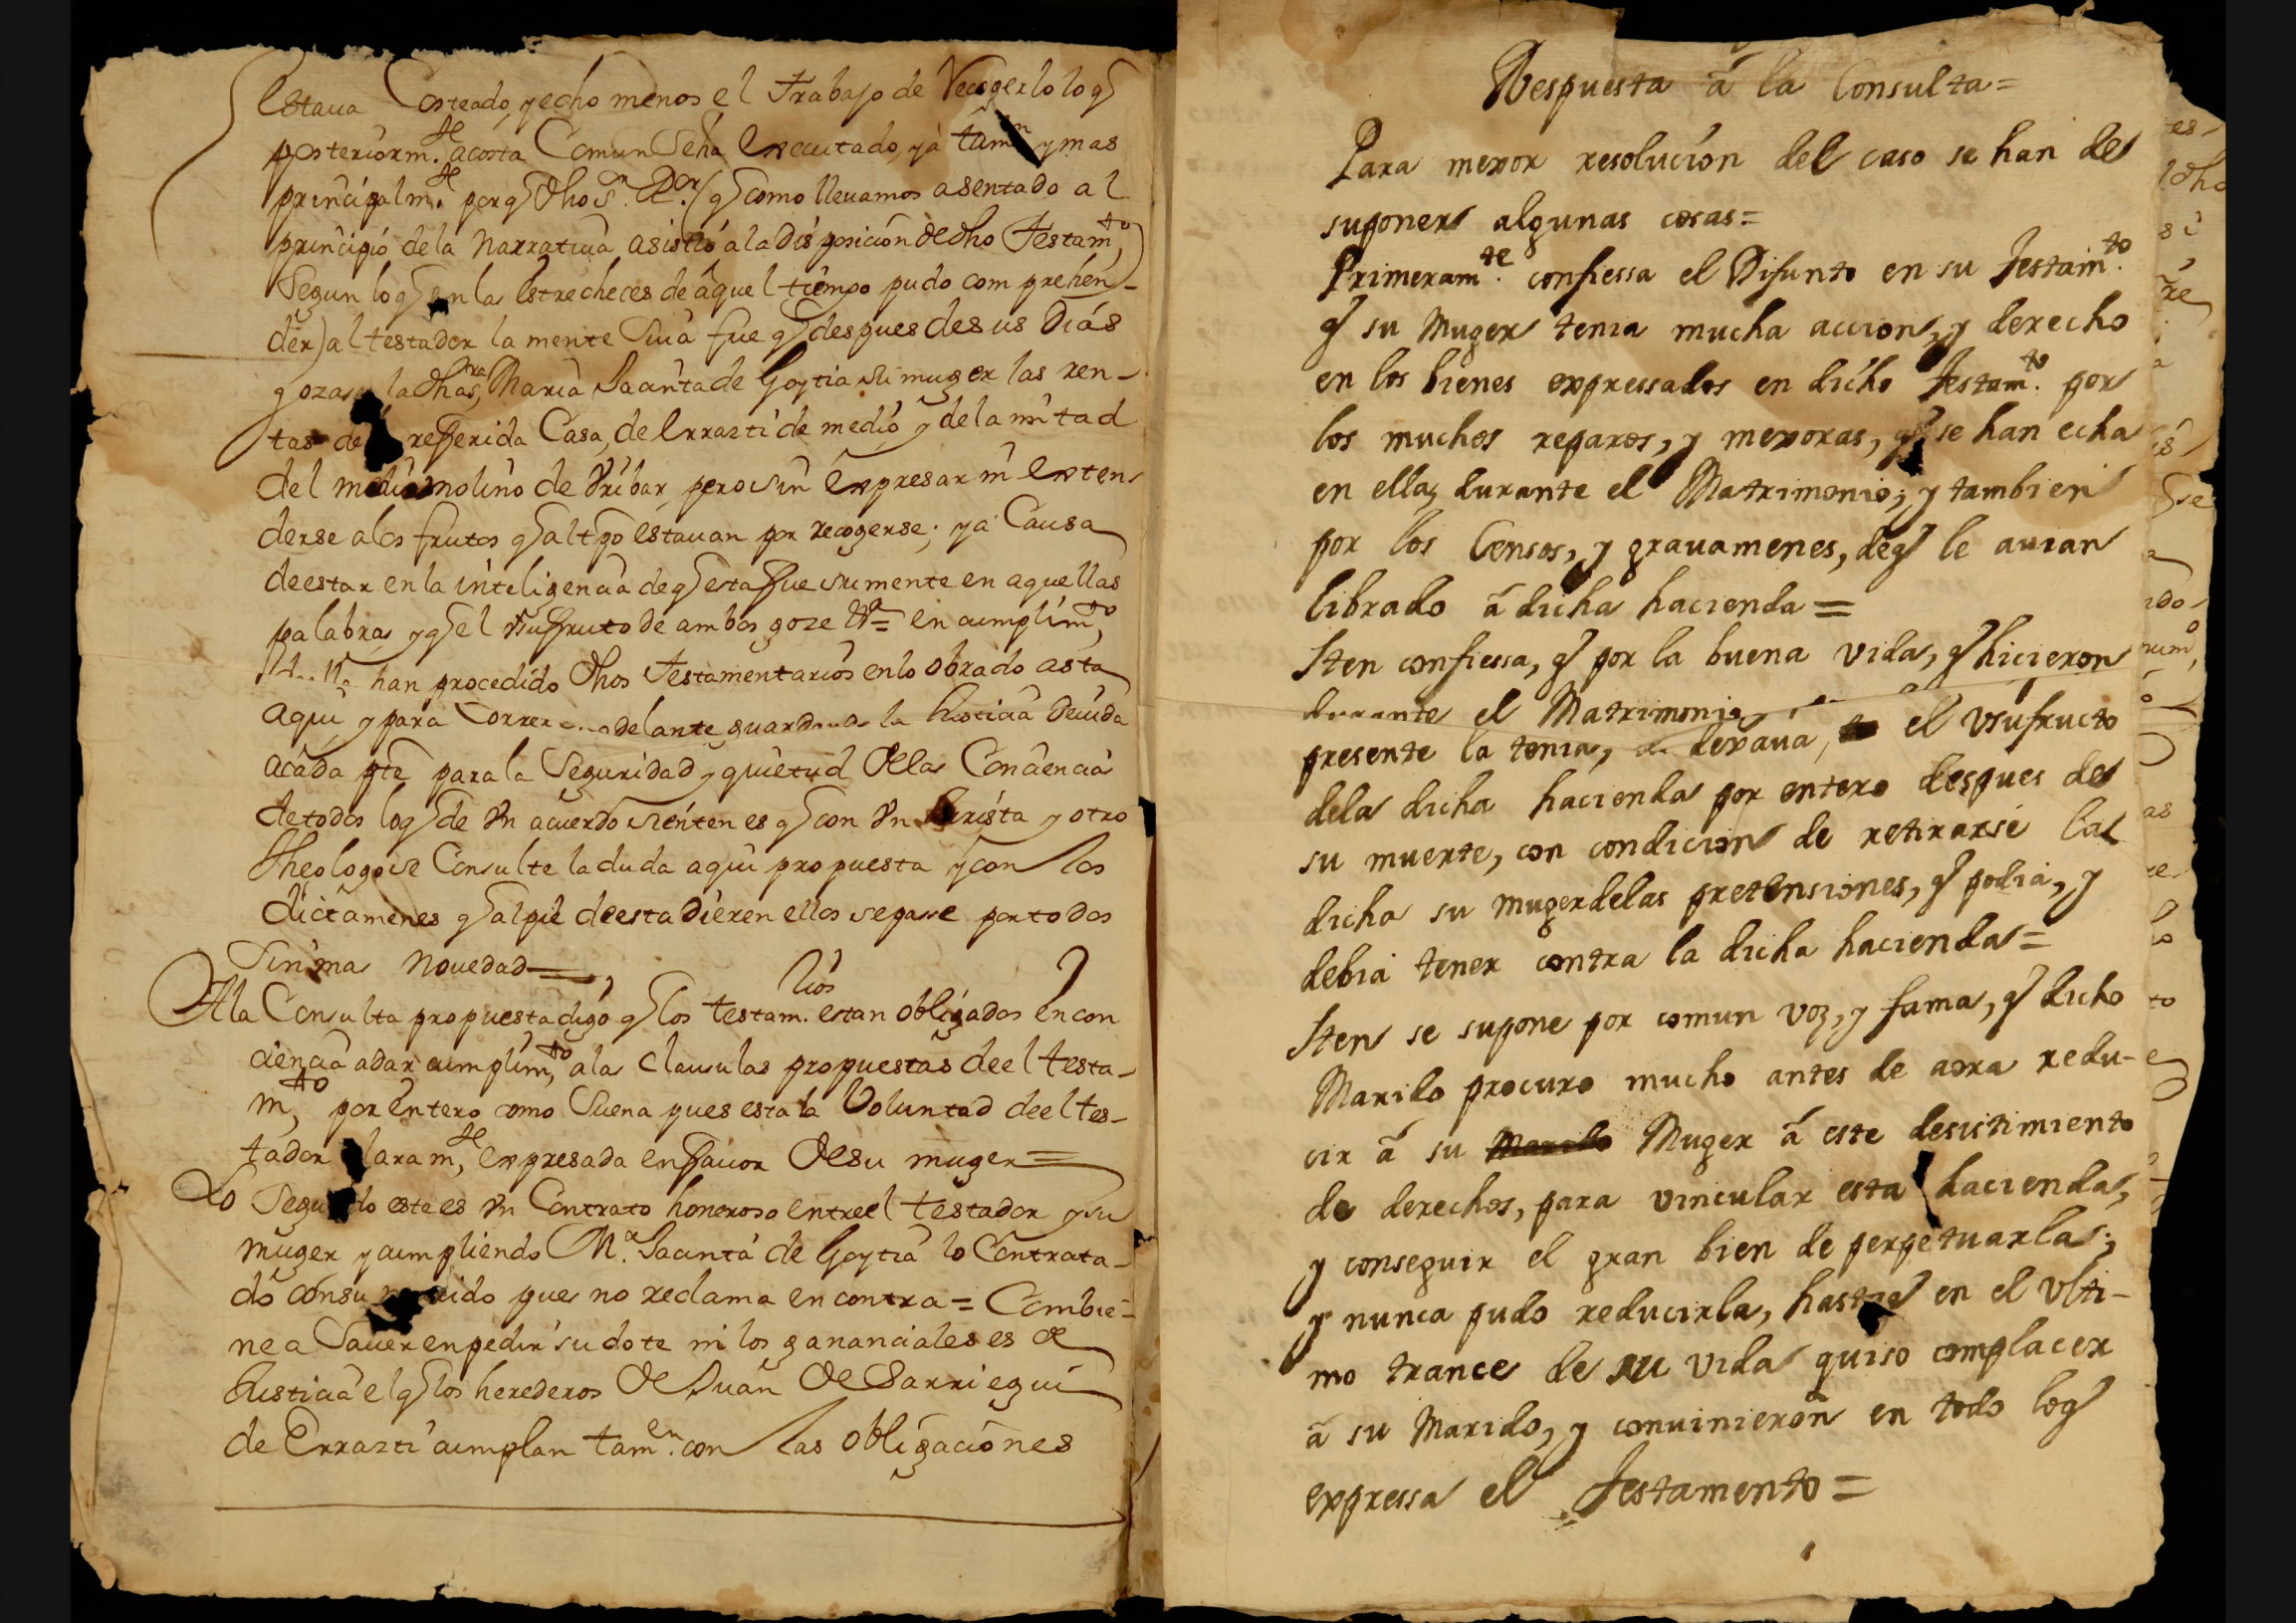 estaua Costeado, y echo menos el Trabajo de Recogerlo lo q̃
posteriorm.te acosta Comun Se ha executado, y à tamn y mas
principalm.te porq̃ dho S.r R.or (q̃ como lleuamos asentado al
principio de la Narratiua asistió a la Disposicion de dho Testam,to
Segun lo q̃ en las estrecheces de aquel tiempo pudo comprehen-
der) al testador la mente Suia fue q̃ despues de sus Diás
gozase la dha Maria Jacinta de Goytia su muger las ren-
tas de referida Casa, de Errazti de medio y de la mitad
del medio molino de Vribar, pero sin expresar ni exten
derse alos frutos q̃ al tpo estauan por recogerse; y a Causa
de estar en la inteligencia de q̃ esta fue su mente en aquellas
palabras y q̃ el vsufruto de ambos goze etta = en cumplim,to
han procedido dhos Testamentarios en lo obrado asta
aqui, y para Correr adelante guardando la Justicia Deuida
acada pte para la Seguridad y quietud de las Conciencias
de todos lo q̃ de vn acuerdo sienten es q̃ con vn Jurista y otro
theologo se Consulte la duda aqui propuesta y con los
dictamenes q̃ al pie de esta dieren ellos se pase por todos
Sin mas Novedad =
A la Consulta propuesta digo q̃ los testam.rios estan obligados en con
ciencia a dar cumplim,to a las Clausulas propuestas de el testa-
m,to por entero como Suena pues esta la Voluntad de el tes-
tador laram,te expresada en fauor de su muger =
Lo Segu do este es vn Contrato honeroso entre el testador y su
muger y cumpliendo M.a Jacinta de Goytia lo Contrata-
do con su ido pues no reclama en contra = Combie-
ne a Sauer en pedir su dote ni los gananciales es de
Justicia el q̃ los herederos de Juan de Barriegui
de Errazti cumplan tam.en con las obligaciones
Respuesta â la Consulta =
Para mexor resolucion del caso se han de
suponer algunas cosas =
Primeram.te confiessa el Difunto en su Testam.to
q̃ su Muger tenia mucha accion, y derecho
en los bienes expressados en dicho Testam.to por
los muchos reparos, y mexoras, q̃ se han echa
en ella, durante el Matrimonio; y tambien
por los Censos, y grauamenes, de q̃ le auian
librado â dicha hacienda =
Iten confiessa, q̃ por la buena vida, q̃ hicieron
durante el Matrimonio
presente la tenia, dexaua, el vsufructo
dela dicha hacienda por entero despues de
su muerte, con condicion de retirarse la
dicha su muger delas pretensiones, q̃ podia, y
debia tener contra la dicha hacienda =
Iten se supone por comun voz, y fama, q̃ dicho
Marido procuro mucho antes de aora redu-
cir â su Marido Muger â este desistimiento
de derechos, para vincular esta hacienda,
y conseguir el gran bien de perpetuarla;
y nunca pudo reducirla, hasta en el vlti-
mo trance de su vida quiso complacer
â su Marido, y conuinieron en todo lo q̃
expressa el Testamento =